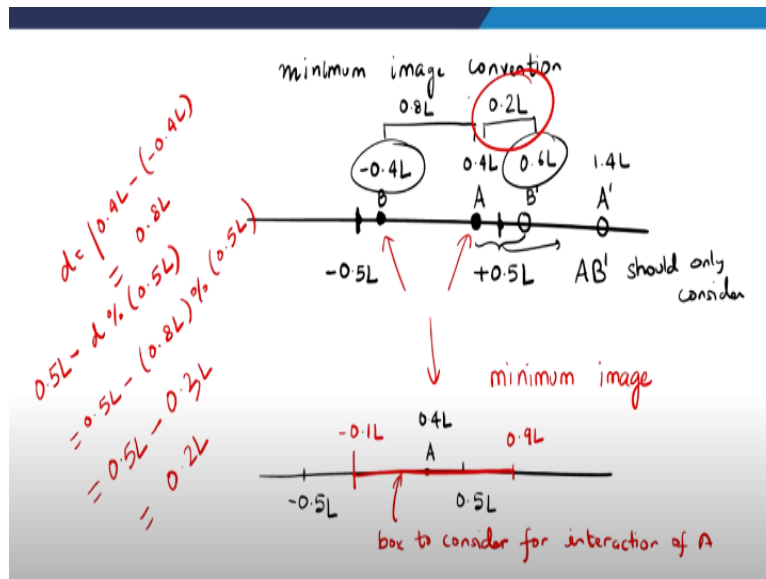 minimum image convention
0.8L 0.2L
-0.4L 0.4L 0.6L 1.4L
B A B' A'
-0.5L +0.5L AB' should only
consider
d= |0.4L-(-0.4L)
= 0.8L
0.5L- d%(0.5L)
=0.5L-(0.8L)%(0.5L)
= 0.5L-0.3L
= 0.2L
minimum image
-0.1L 0.4L 0.9L
A
-0.5L 0.5L
box to consider for interaction of A